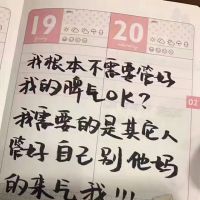 19
20
02
我根本不需要管好
我的脾气OK?
我需要的是其它人
管好自己别他妈
的来气我!!!